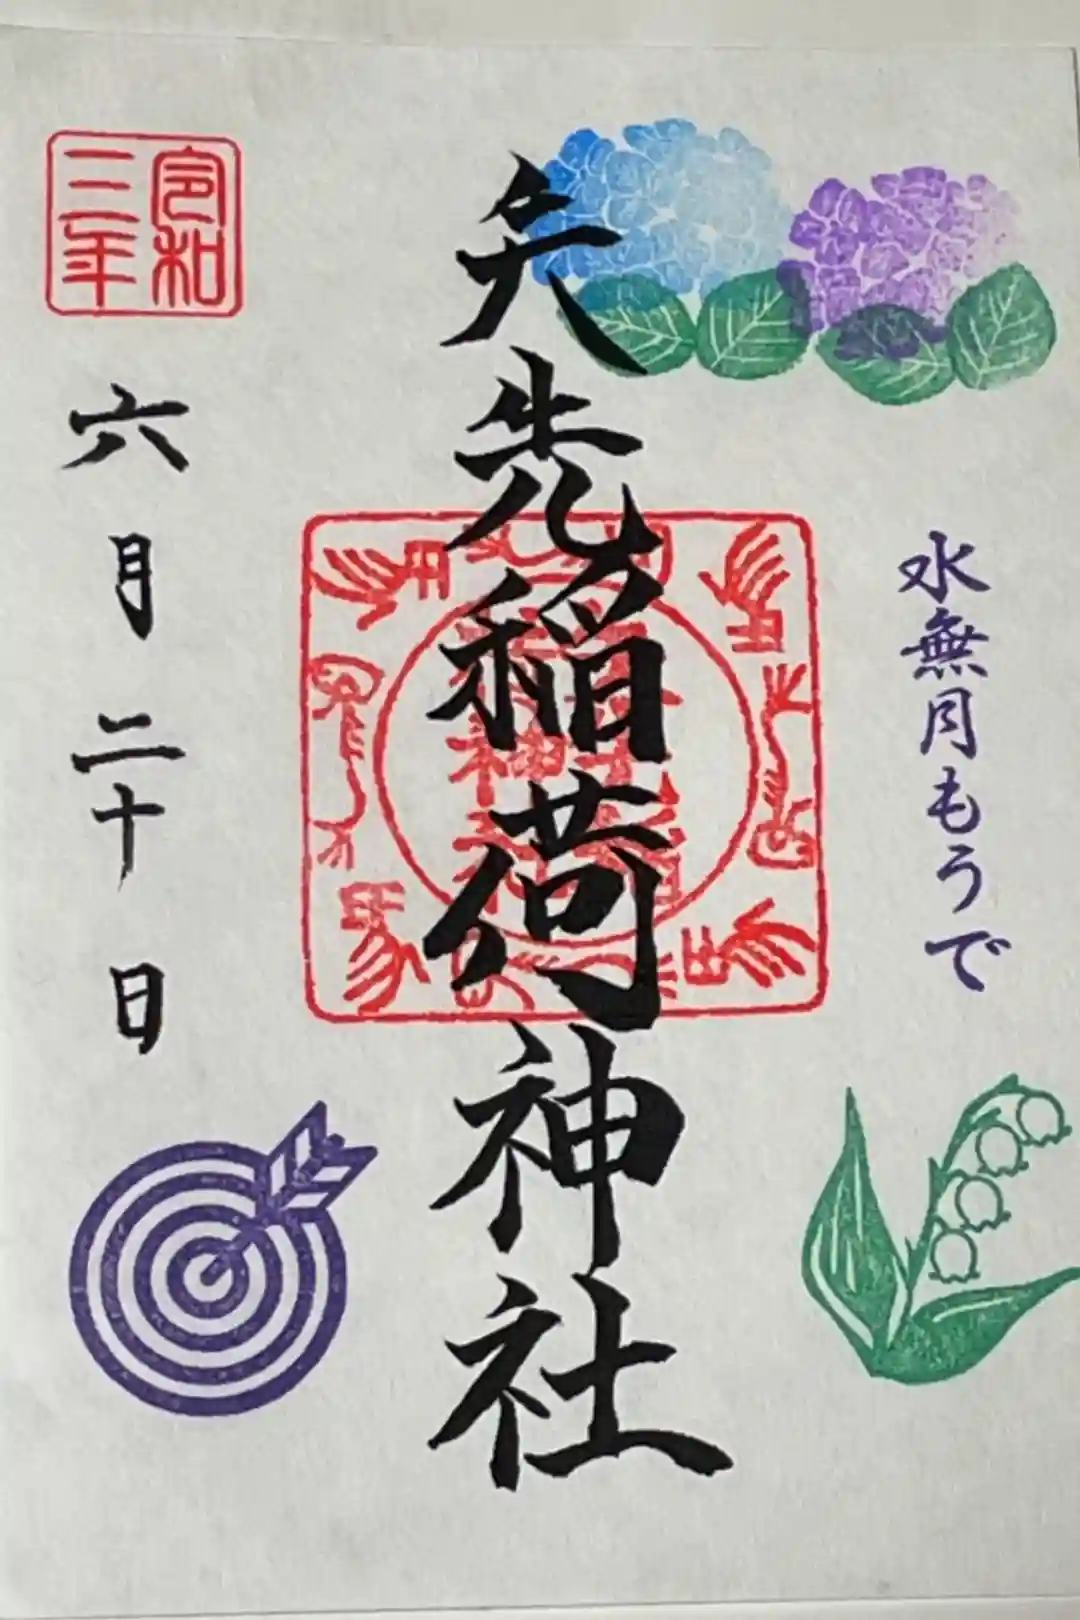 水無月もうで
矢先稲荷神社
令和三年
六月二十日